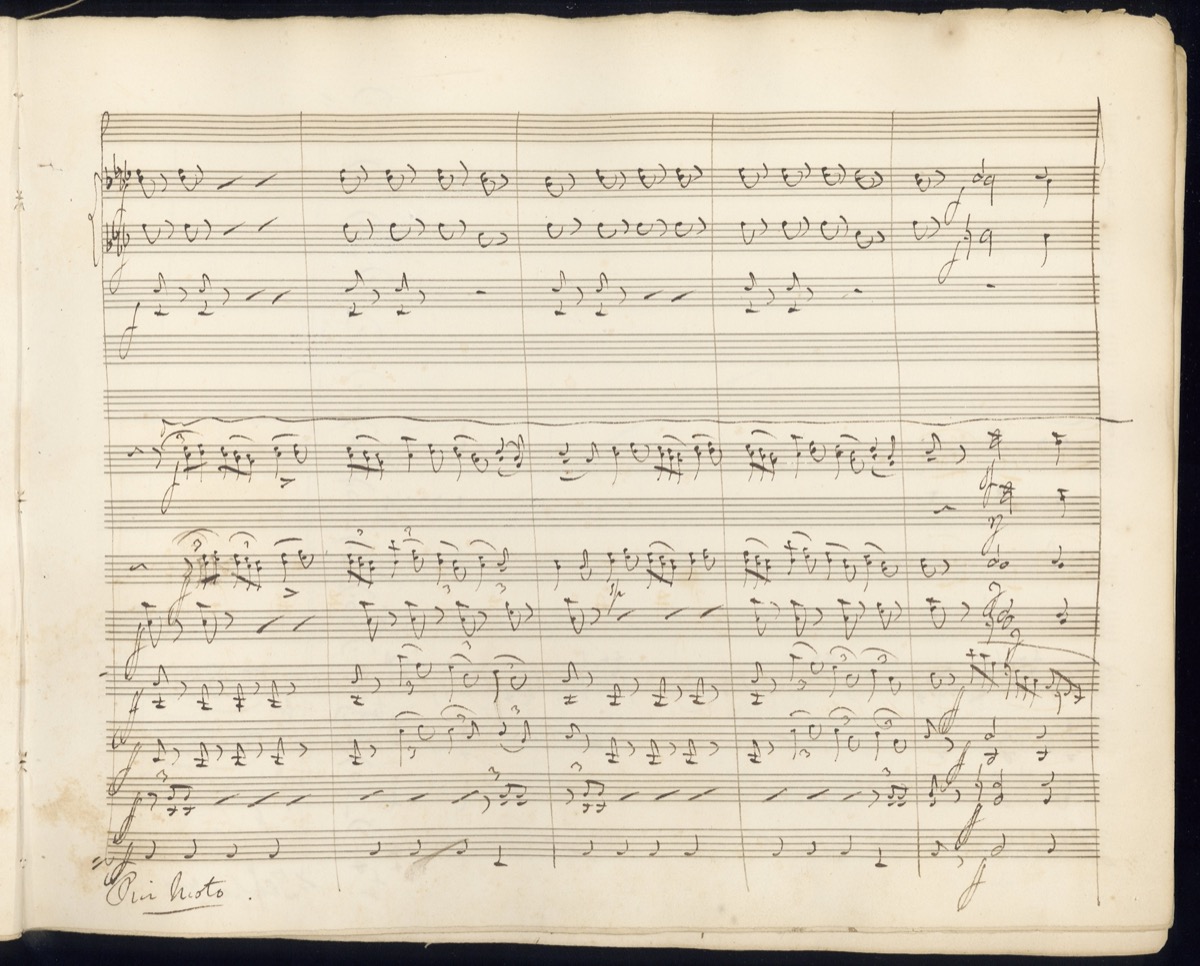 Piu Moto.